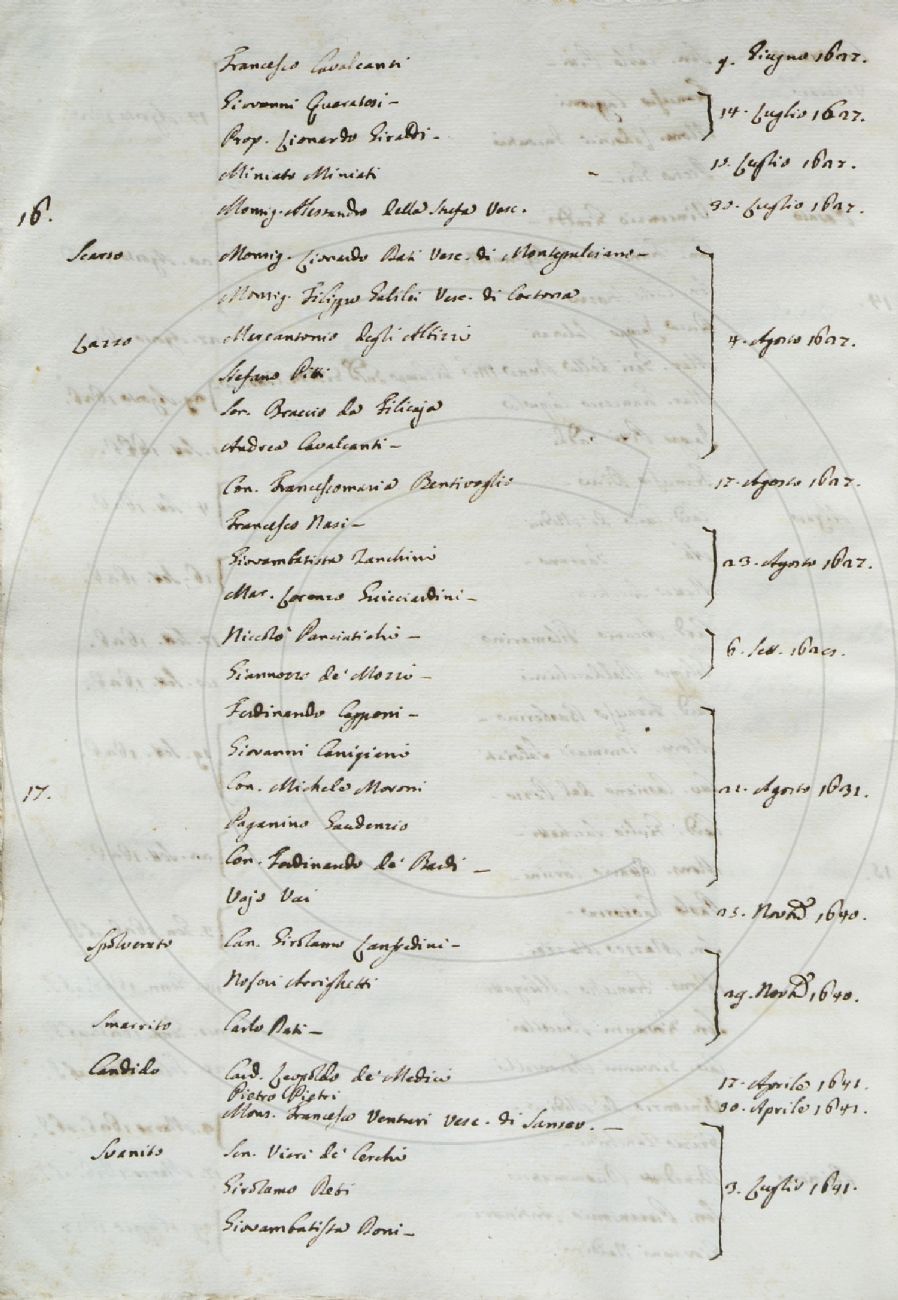 Francesco Cavalcanti 9. Giugno 1627.
Giovanni Quaratesi –
Prop. Lionardo Giraldi – 14. Luglio 1627.
Miniato Miniati Luglio 1627.
16. Monsig. Alessandro della Stufa Vesc. 30. Luglio 1627.
Scarso Monsig. Lionardo Dati Vesc. di Montepulciano –
Monsig. Filippo Salviati Vesc. di Cortona
Lasso Marcantonio degli Albizi 4. Agosto 1627.
Stefano Pitti
Sen. Braccio da Filicaja
Andrea Cavalcanti –
Con. Francescomaria Bentivoglio 17. Agosto 1627.
Francesco Nasi –
Giovambatista Zanchini 23. Agosto 1627.
Mar. Lorenzo Guicciardini –
Niccolò Panciatichi – 6. Set.
Giannozzo de' Mozzi –
Ferdinando Capponi –
Giovanni Canigiani
17. Con. Michele Moroni 21. Agosto 1631.
Paganino Gaudenzio
Con. Ferdinando de' Bardi –
Vajo Vai 25. Novb. 1640.
Spolverato Can. Girolamo Lanfredini –
Nofori Arrighetti 29. Novb. 1640.
Smarrito Carlo Dati –
Candido Card. Leopoldo de' Medici 17. Aprile 1641.
Pietro Pietri 30. Aprile 1641.
Mons. Francesco Venturi Vesc. di Sansev. –
Svanito Sen. Vieri de' Cerchi
Girolamo 3. Luglio 1641.
Giovambatista Doni –